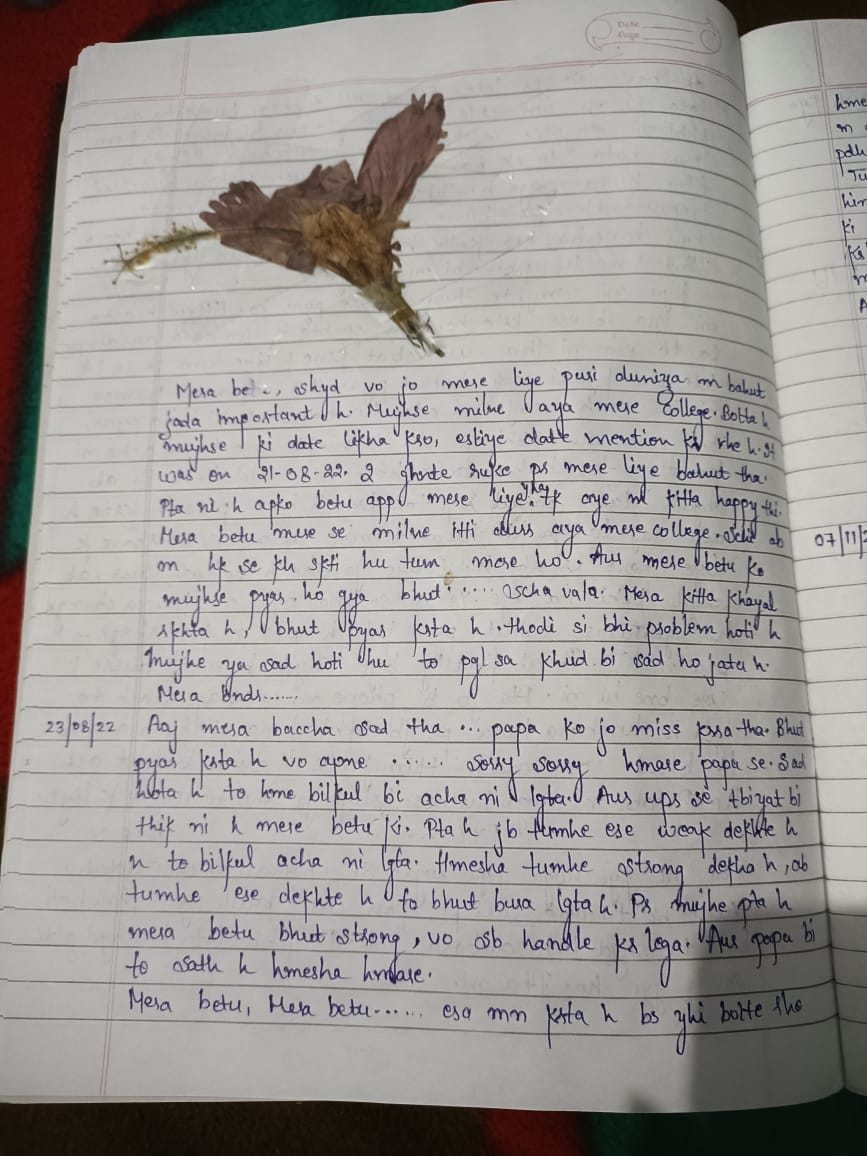 Date
Page
Mera betu, shyd vo jo mere liye puri duniya m bahut
jada important h. Mujhse milne aaya mere College. Bolta h
mujhse ki date likha kro, esliye date mention kr rhe h. It
was on 21-08-22. 2 ghnte ruke ps mere liye bahut tha.
Pta ni h apko betu app mere liye yha tk aye m kitta happy thi.
Mera betu muje se milne itti duur aya mere college. Schi ab
m hk se kh skti hu tum mere ho. Aur mere betu ko
mujhse pyar ho gya bhut ..... scha vala. Mera kitta khayal
rkhta h, bhut pyar krta h. thodi si bhi problem hoti h
mujhe ya sad hoti hu to pgl sa khud bi sad ho jata h.
Mera
23/08/22 Aaj mera baccha sad tha ... papa ko jo miss krra tha. Bhut
pyar krta h vo apne ...... sorry sorry hmare papa se. Sad
hota h to hme bilkul bi acha ni lgta. Aur ups se tbiyat bi
thik ni h mere betu ki. Pta h jb tumhe ese weak dekhte h
n to bilkul acha ni lgta. Hmesha tumhe strong dekha h, ab
tumhe ese dekhte h to bhut bura lgta h. Pr mujhe pta h
mera betu bhut strong, vo sb handle kr lega. Aur papa bi
to sath h hmesha hmare.
Mera betu, Mera betu...... esa mn krta h bs yhi bolte rho
hme
m
pdh
Tu
ki
07/11/2